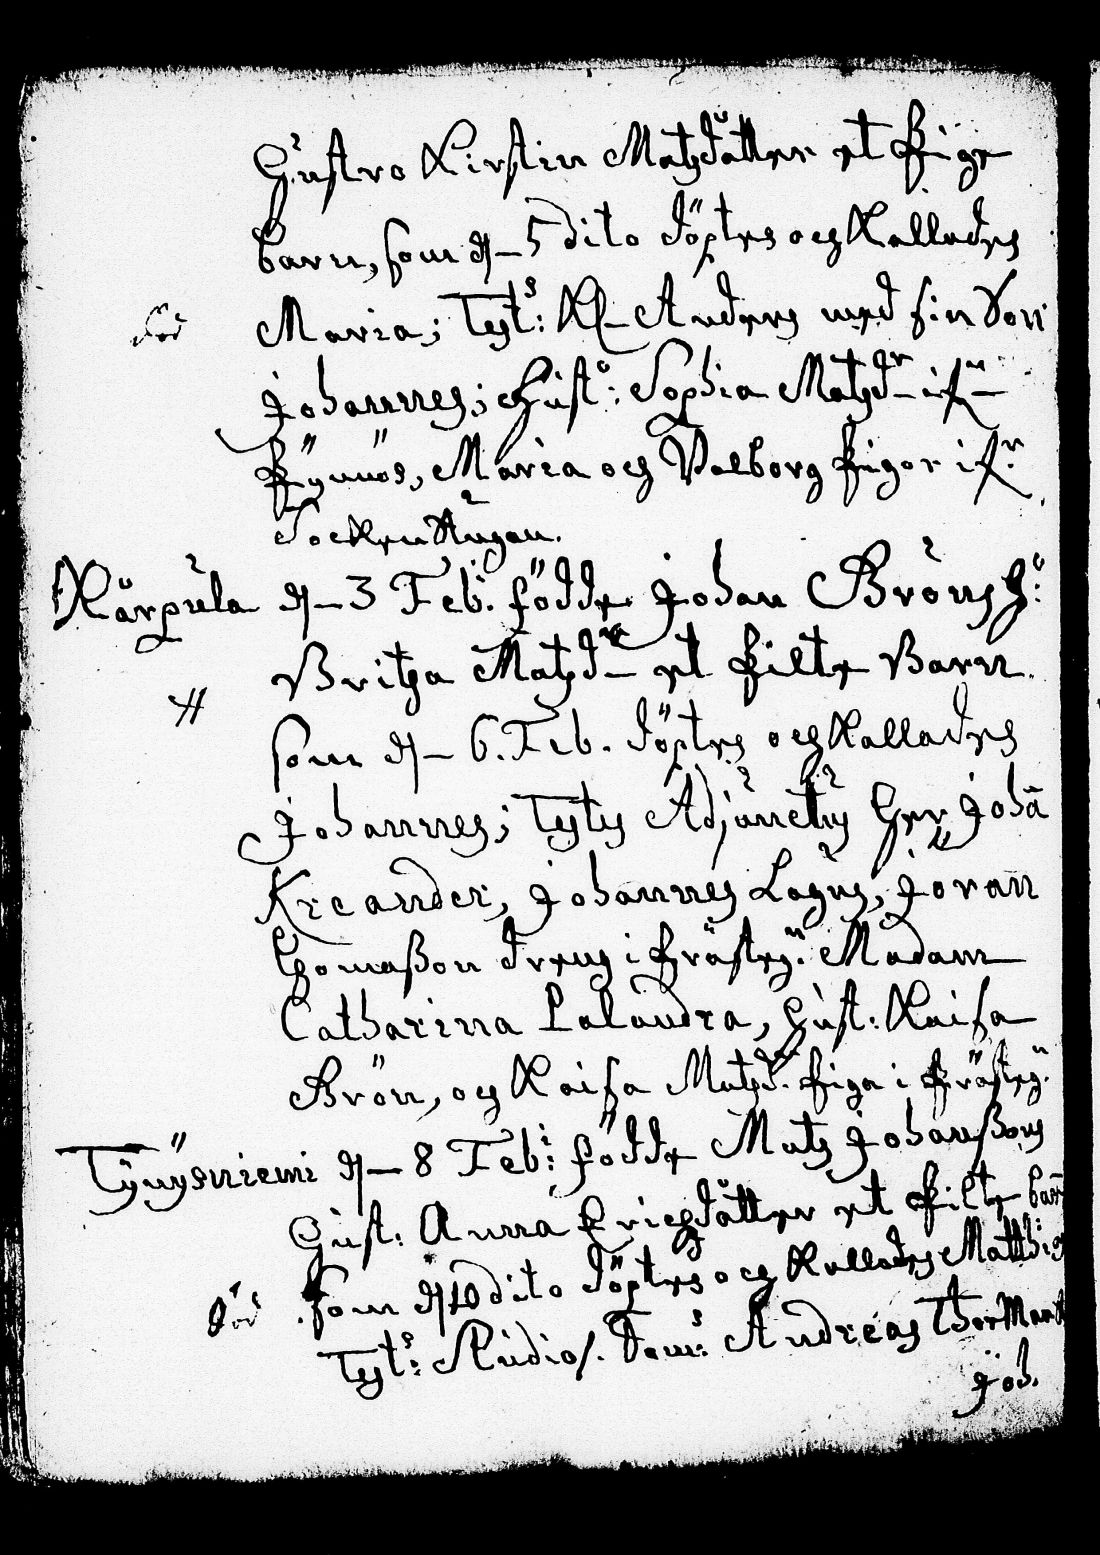 Hustro Kirstin Matzdåtter et Pige
barn, som d. 5 dito döptes och Kallades
död Maria; Test:s Kl- Anders med sin Son
Johannes; Hust:o Sophia Matzd:r if:n
Pynnös, Maria och Valborg Pigor if:n
Socken Stugan.
Kärpula d. 3 Feb: födde Johan Bröns H:o
Britha Matzd:r et Pilte Barn
som d. 6. Feb. döptes och Kallades
Johannes; Testes Adjunctus Herr Johã
Kreander, Johannes Lagus, Jöran
Thomaßon dreng i Prästeg:n Madam
Catharina Palaudra, Hust: Kaisa
Brön, och Kaisa Matzd:r Piga i Prästeg:n
Tynysniemi d. 8 Feb: födde Matz Johanßons
Hust: Anna Ericzdåtter et Pilte barn
död som d. 10 dito döptes och Kallades Matthias
Test:s Studios. Dom: Andreas
Joh.